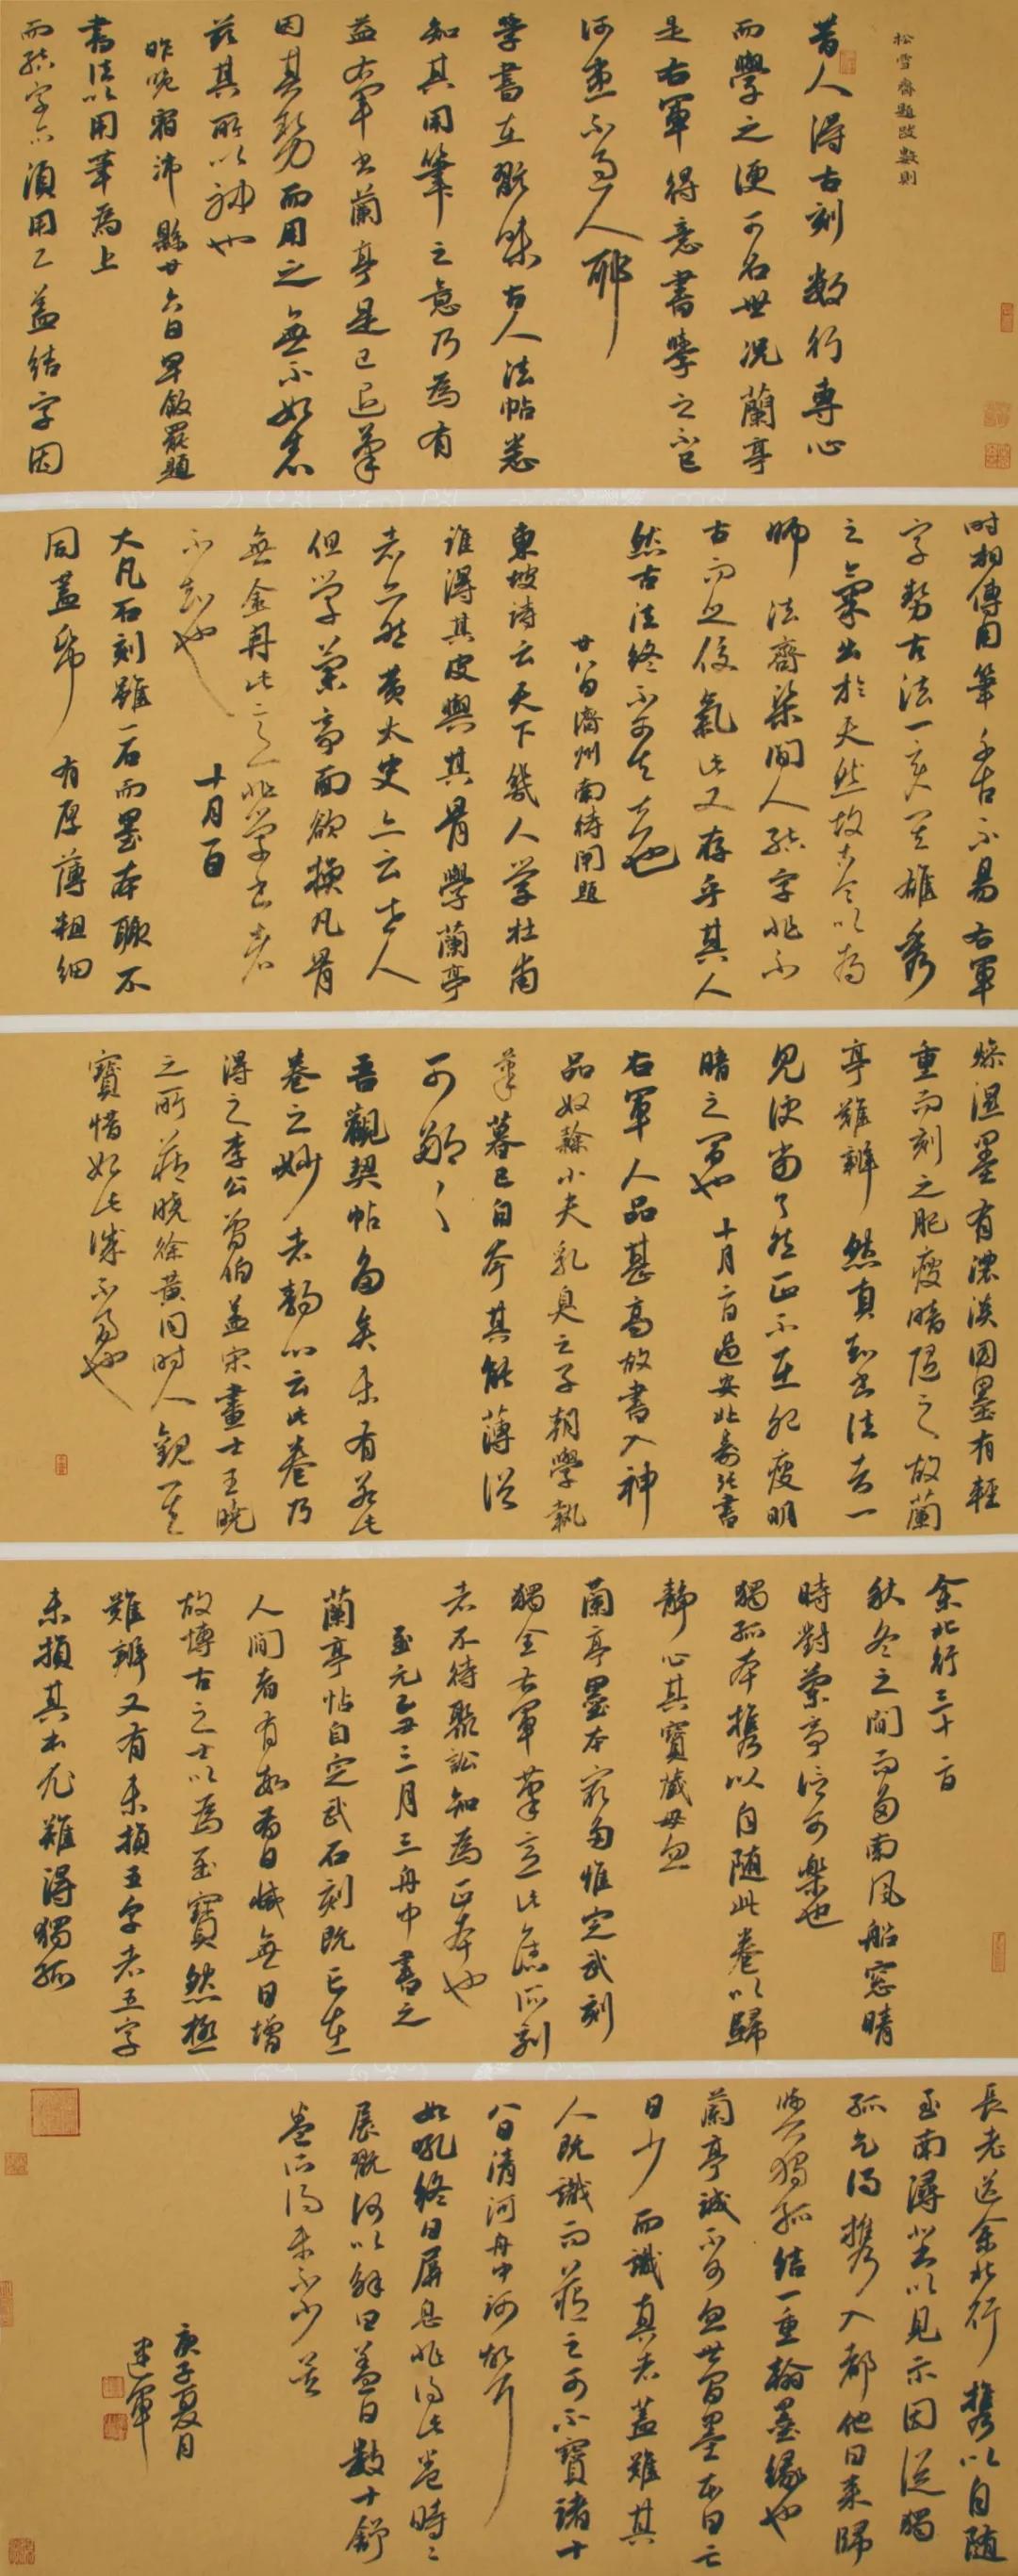 松雪齋題跋數則
昔人得古刻數行專心
而學之便可名世況蘭亭
是右軍得意書學之不已
何患不過人耶
學書在玩味古人法帖悉
知其用筆之意乃為有
益右軍書蘭亭是已退筆
因其勢而用之無不如志
茲其所以神也
昨晚宿沛縣廿六日早飯罷題
書法以用筆為上
而結字亦須用工蓋結字因
時相傳用筆千古不易右軍
字勢古法一變其雄秀
之氣出於天然故古今以為
師法齊梁間人結字非不
古而乏俊氣此又存乎其人
然古法終不可失也
廿八日濟州南待閘題
東坡詩云天下幾人學杜甫
誰得其皮與其骨學蘭亭
者亦然黃太史亦云世人
但學蘭亭面欲換凡骨
無金丹此意非學書者
不知也
十月一日
大凡石刻雖一石而墨本輒不
同蓋帋有厚薄粗細
燥濕墨有濃淡因墨有輕
重而刻之肥瘦暗隨之故蘭
亭難辨然真知書法者一
見便當了然正不在肥瘦明
暗之間也 十月二日過安北壽張書
右軍人品甚高故書入神
品奴隸小夫乳臭之子朝學執
筆暮已自夸其能薄俗
可鄙〻
吾觀禊帖多矣未有若此
卷之妙者靜心云此卷乃
得之李公曾伯蓋宋畫士王曉
之所藏曉徐黃同時人觀其
寶惜如此誠不易也
余北行三十二日
秋冬之間而多南風船窓晴
時對蘭亭信可樂也
獨孤本攜以自隨此卷以歸
靜心其寶藏毋忽
蘭亭墨本最多惟定武刻
獨全右軍筆意此舊所刻
者不待聚訟知為正本也
至元己丑三月三舟中書之
蘭亭帖自定武石刻既亡在
人間者有數有日減無日增
故博古之士以為至寶然極
難辨又有未損五字者五字
未損其本尤難得獨孤
長老送余北行攜以自隨
至南潯北出以見示因從獨
孤乞得攜入都他日來歸
與獨孤結一重翰墨緣也
蘭亭誠不可忽世間墨本日亡
日少而識真者蓋難其
人既識而藏之可不寶諸十
八日清河舟中河聲
如吼終日屏息非得此卷時〻
展玩何以解日蓋日數十舒
卷所得未不少
庚子夏月
建軍